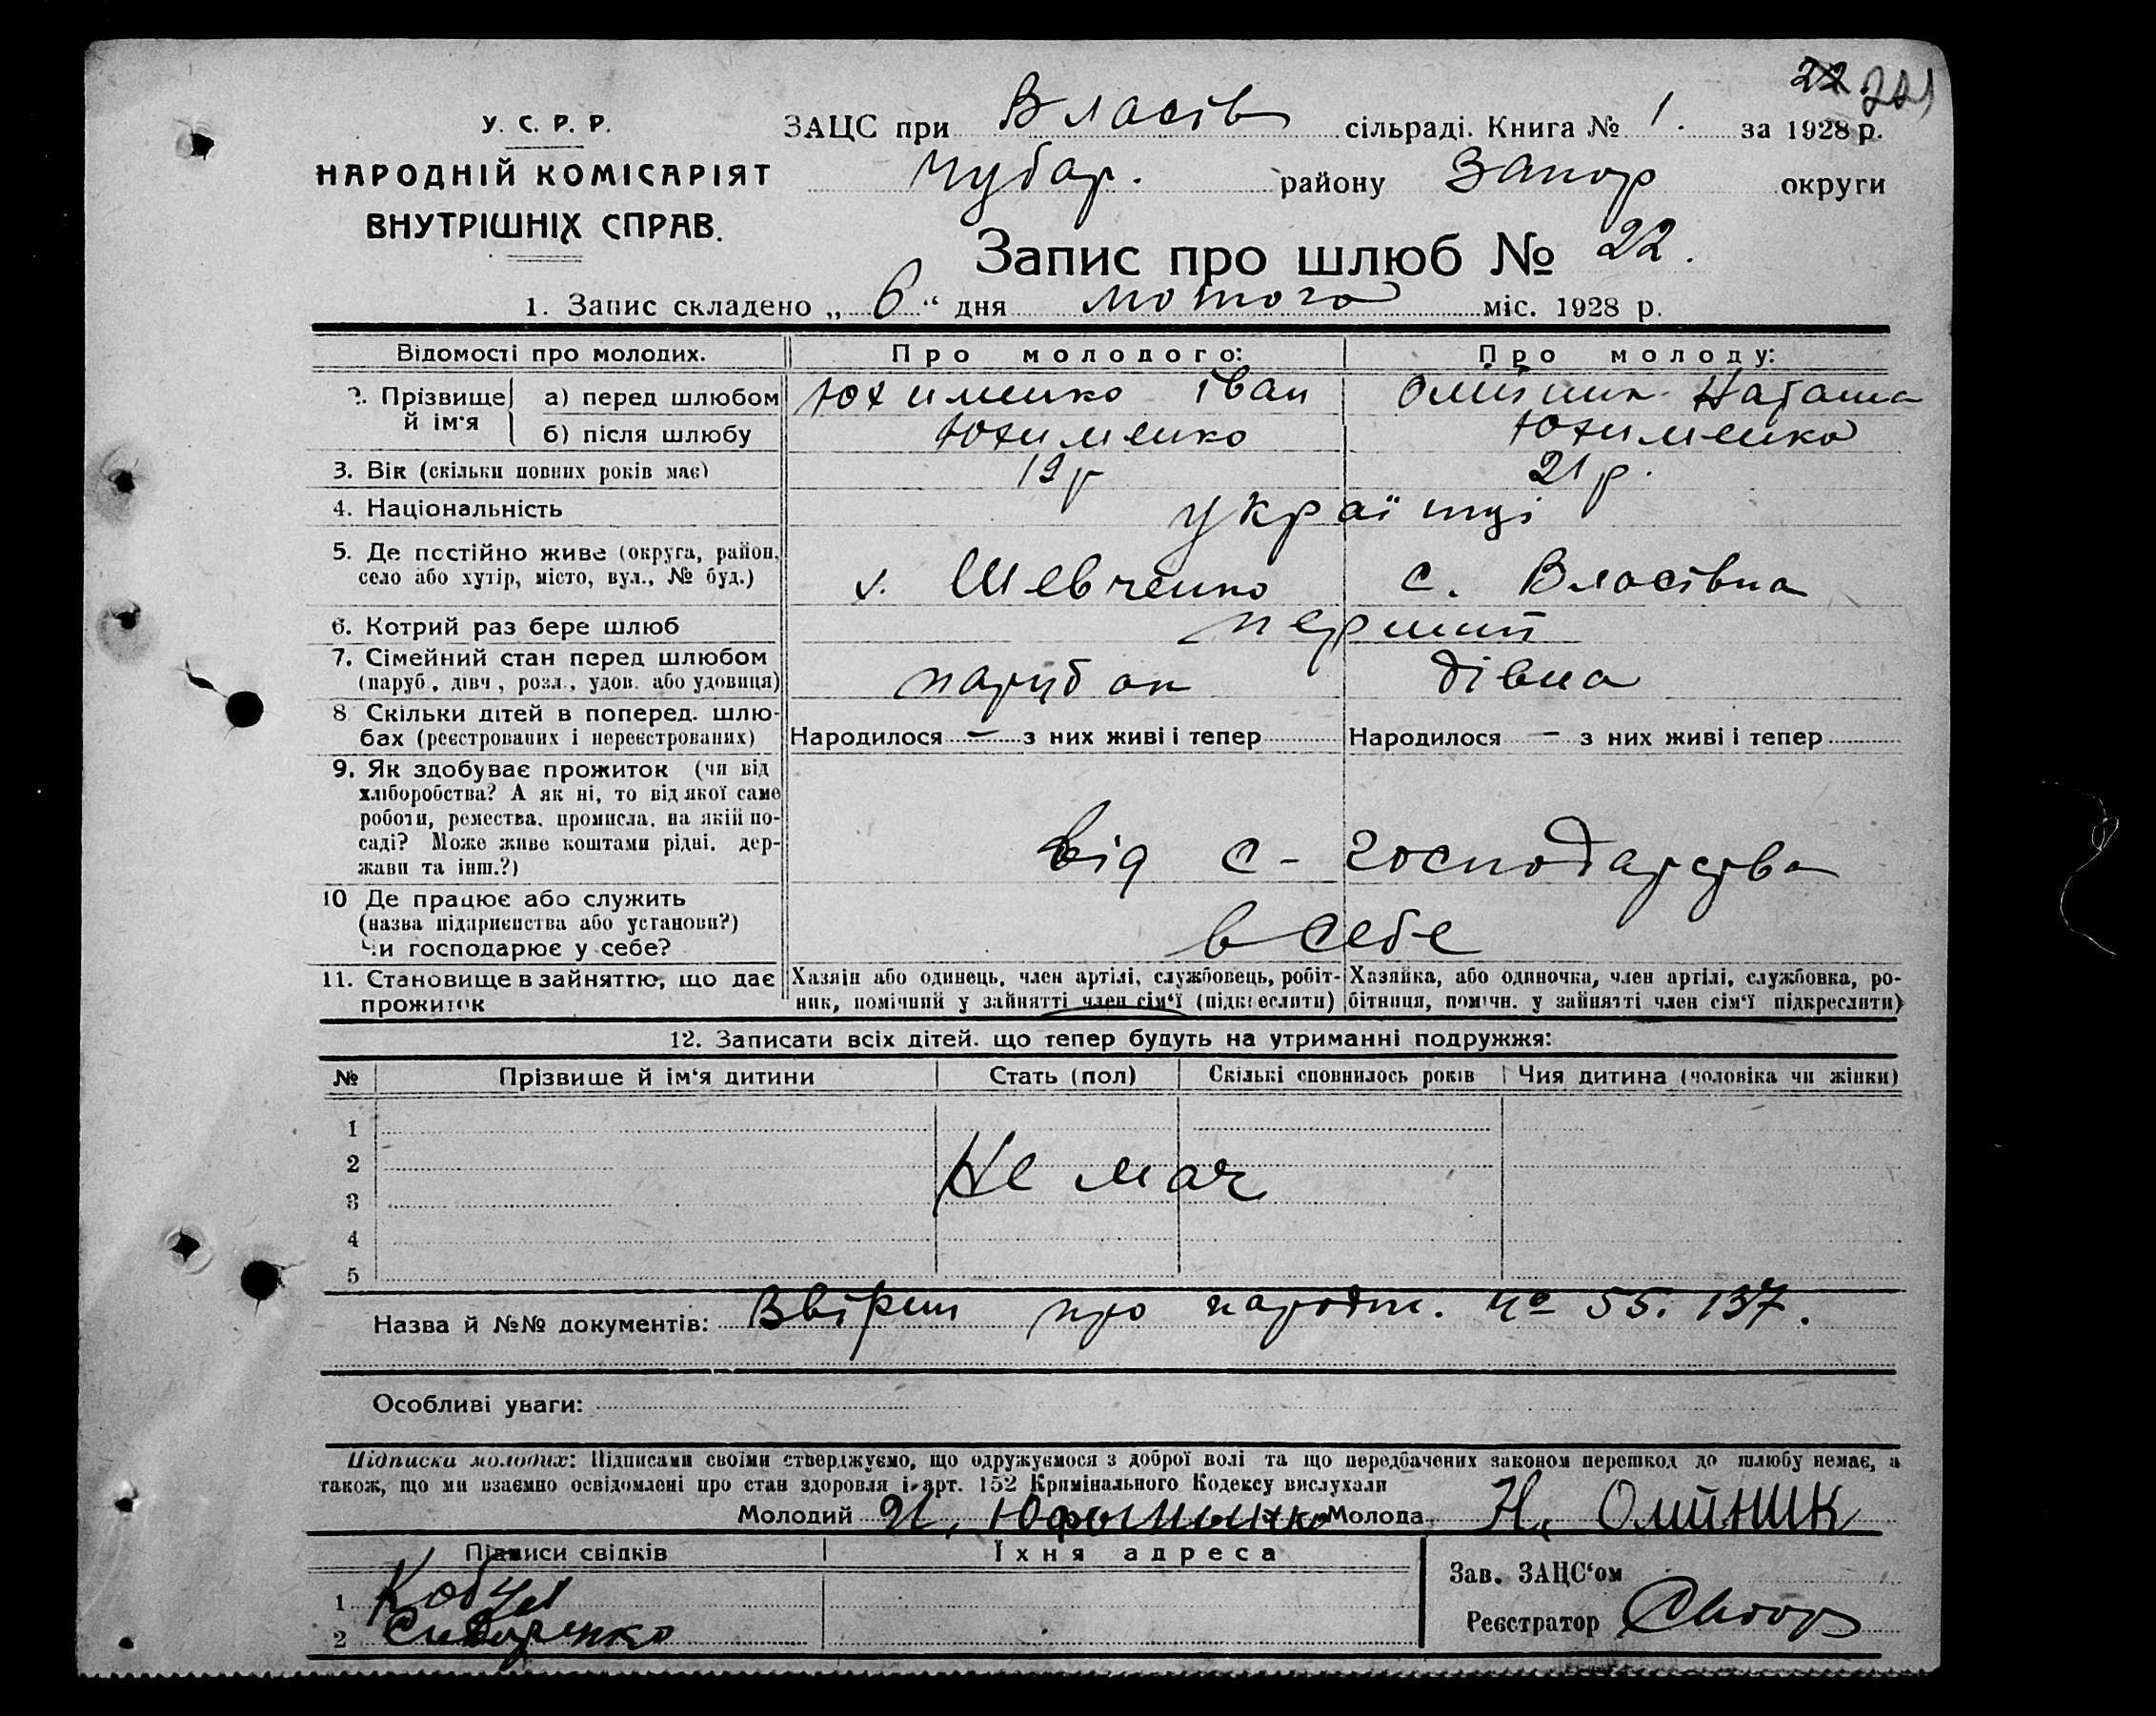 22 221
У. С. Р. Р.
НАРОДНІЙ КОМІСАРІЯТ
ВНУТРІШНІХ СПРАВ.
ЗАЦС при Власів сільраді. Книга № 1. за 1928 р.
Чубар. району Запор округи
Запис про шлюб № 22.
1. Запис складено „ 6 “ дня лютого міс. 1928 р.
Відомості про молодих. Про молодого: Про молоду:
2. Прізвище й ім'я а) перед шлюбом Юхименко Іван Олійник Наташа
б) після шлюбу Юхименко Юхименко
3. Вік (скільки повних років має) 19 р 21 р.
4. Національність українці
5. Де постійно живе (округа, район,
село або хутір, місто, вул., № буд.) х. Шевченко с. Власівка
6. Котрий раз бере шлюб перший
7. Сімейний стан перед шлюбом
(паруб., дівч., розл., удов. або удовиця) парубок дівка
8 Скільки дітей в поперед. шлю-
бах (реєстрованих і нереєстрованих) Народилося — з них живі і тепер Народилося — з них живі і тепер
9. Як здобуває прожиток (чи від
хліборобства? А як ні, то від якої саме
роботи, ремества, промисла, на якій по-
саді? Може живе коштами рідні, дер-
жави та інш.?) від с-господарства
10 Де працює або служить
(назва підприємства або установи?)
Чи господарює у себе? в себе
11. Становище в зайняттю, що дає
прожиток
Хазяїн або одинець, член артілі, службовець, робіт-
ник, помічний у зайнятті член сім'ї (підкреслити)
Хазяйка, або одиночка, член артілі, службовка, ро-
бітниця, помічн. у зайнятті член сім'ї підкреслити)
12. Записати всіх дітей, що тепер будуть на утриманні подружжя:
№ Прізвище й ім'я дитини Стать (пол) Скількі сповнилось років Чия дитина (чоловіка чи жінки)
1
2 Не має
3
4
5
Назва й №№ документів: про народж. № 55. 137.
Особливі уваги:
Підписка молодих: Підписами своїми стверджуємо, що одружуємося з доброї волі та що передбачених законом перешкод до шлюбу немає, а
також, що ми взаємно освідомлені про стан здоровля і арт. 152 Кримінального Кодексу вислухали
Молодий И. Молода Н. Олийник
Підписи свідків Їхня адреса
Зав. ЗАЦС'ом
1
2 Сидоренко
Реєстратор